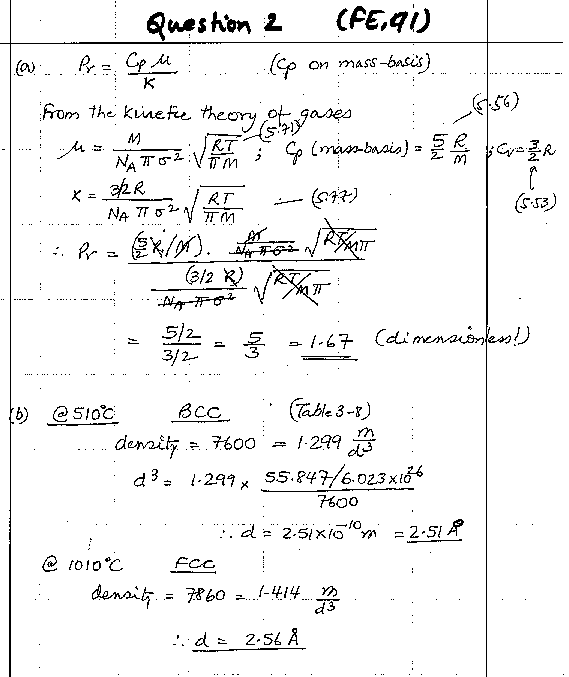 Question 2 (FE,91)
(a) Pr = Cp μ / K (Cp on mass-basis)
From the kinetic theory of gases (5.56)
μ = M / NA π σ² √(RT / πM) (5.71) ; Cp (mass-basis) = 5/2 R/M ; Cv = 3/2 R
(5.53)
K = 3/2 R / NA π σ² √(RT / πM) — (5.77)
∴ Pr = (5/2 R/M) · M / NA π σ² √(RT/Mπ) / (3/2 R) / NA π σ² √(RT/Mπ)
= 5/2 / 3/2 = 5/3 = 1.67 (dimensionless!)
(b) @ 510°C BCC (Table 3-8)
density = 7600 = 1.299 m/d³
d³ = 1.299 × 55.847/6.023×10²⁶ / 7600
∴ d = 2.51×10⁻¹⁰ m = 2.51 Å
@ 1010°C FCC
density = 7860 = 1.414 m/d³
∴ d = 2.56 Å